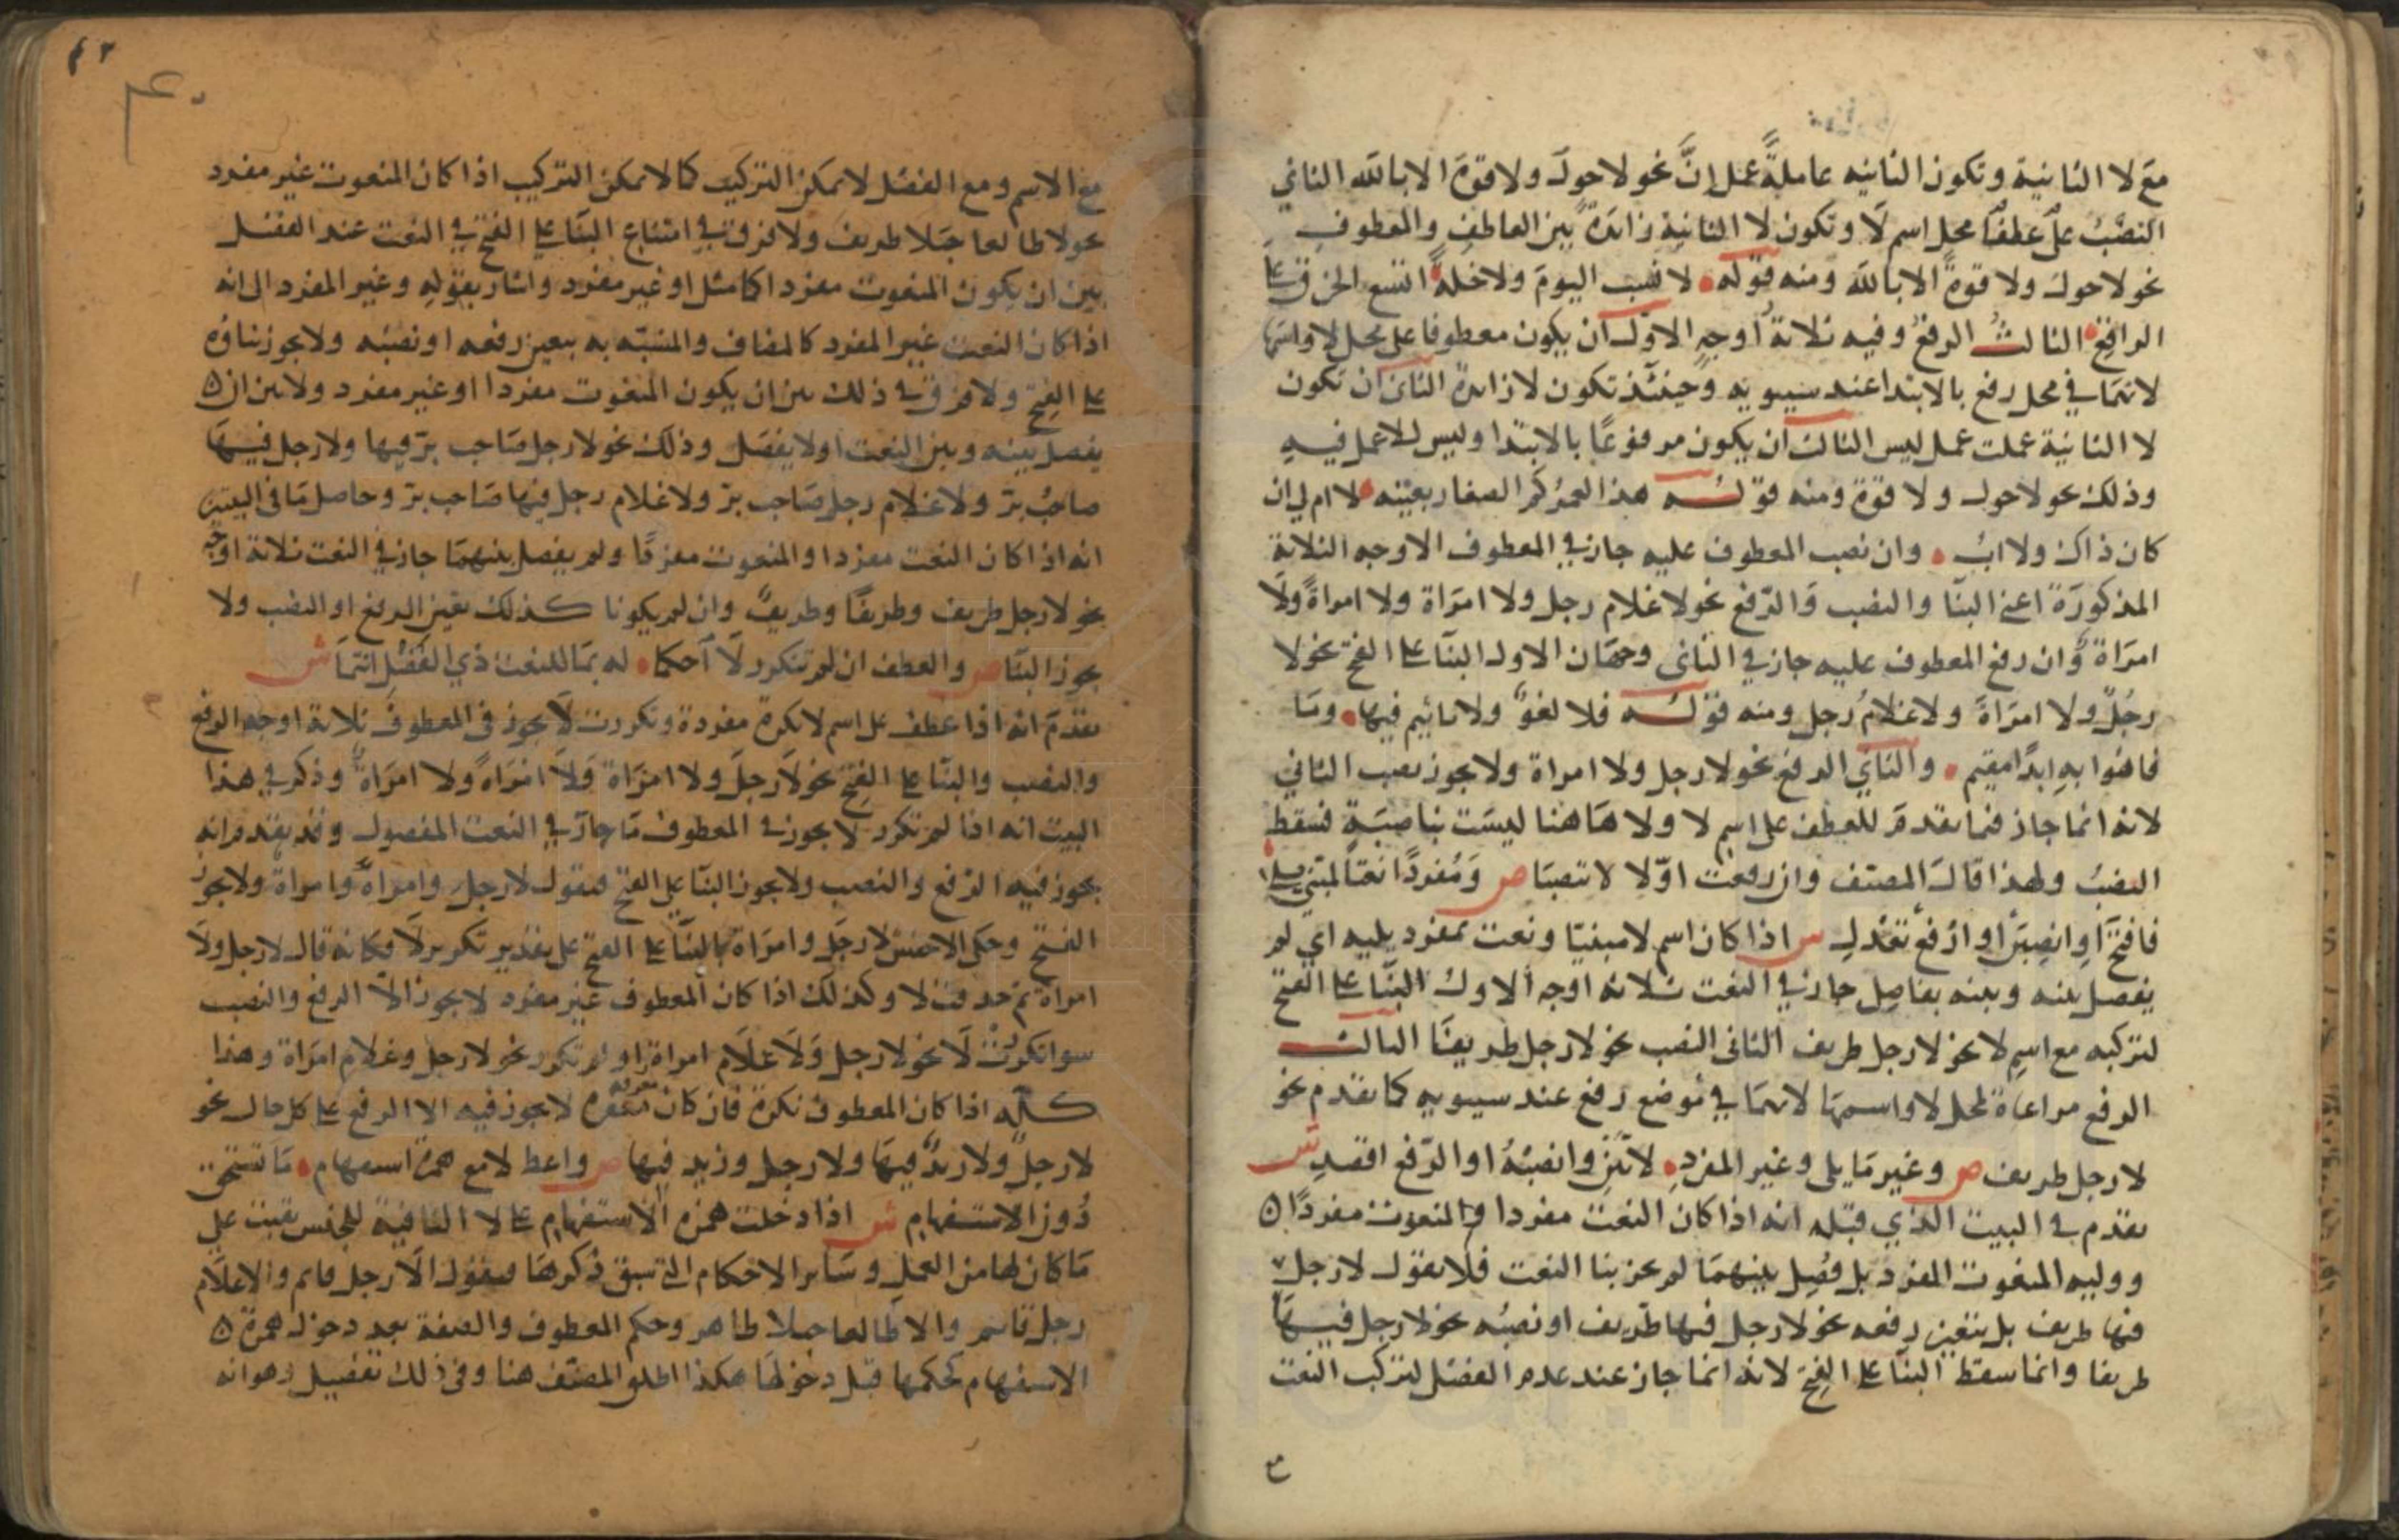 مع لا الثانية وتكون الثانيه عاملةً عمل إنَّ نحو لا حولَ ولا قوة الا بالله الثاني
النصْبُ عطفًا على محل اسم لَا وتكون لا الثانية زايدةً بين العاطف والمعطوف
نحو لا حول ولا قوةً الا بالله ومنه قوله لا نسب اليومَ ولا خلةً اتسع الخرق على
الراقع الثالث الرفعُ وفيه ثلاثة اوجهٍ الاول ان يكون معطوفا على محل لا واسمها
لانهما في محل رفع بالابتدا عند سيبويه وحينئذ تكون لا زايدة الثاني ان تكون
لا الثانية عملت عمل ليس الثالث ان يكون مرفوعًا بالابتدا وليس للا عمل فيهِ
وذلك نحو لا حول ولا قوة ومنه قوله هذا لعمركم الصغار بعينه لا ام لي ان
كان ذاك ولا ابُ وان نصب المعطوف عليه جاز في المعطوف الاوجه الثلاثة
المذكورَة اعني البنا والنصب وَالرّفع نحو لا غلام رجل ولا امرَاة ولا امراةً ولَا
امرَاة وان رفع المعطوف عليه جاز في الثاني وجهان الاول البنآ على الفتح نحو لا
رجُلٌ ولا امرَاةَ ولا غلامُ رجل ومنه قوله فلا لغوٌ ولا تاثيم فيها وما
فاهُوا بهِ ابدًا مقيم والثاني الرفع نحو لا رجل ولا امراة ولا يجوز نصب الثاني
لانه انما جاز فيما تقدمَ للعطف على اسم لا ولا هَاهنا ليسَت بناصبَةٍ فسقط
النصبُ ولهذا قالَ المصنف وان رفعت اوّلا لا تنصبَا ص وَمُفردًا نعتًا لمبنيٍ يلي
فافتَحْ او انصِبَنْ او ارْفعْ تعْدلِ ش اذا كان اسم لا مبنيّا ونعت بمفرد يليه اي لم
يفصل بينه وبينه بفاصِل جاز في النعت ثلاثة اوجه الاول البنَا على الفتح
لتركبه مع اسمِ لا نحو لا رجل ظريف الثاني النصب نحو لا رجل ظريفًا الثالث
الرفع مراعاة لمحل لا واسمها لانهما في مَوضع رفع عند سيبويه كما تقدم نحو
لا رجل ظريف ص وغير مَا يلي وغير المفردِ لا تَبْنِ وانصبْهُ او الرّفع اقصدِ ش
تقدم في البيت الذي قبله انه اذا كان النعت مفردا والمنعوت مفردًا
ووليه المنعوت المفرد بل فُصِل بينهمَا لم يجز بنا النعت فلا تقول لا رجل
فيها ظريف بل يتعين رفعه نحو لا رجل فيها ظريف او نصبُه نحو لا رجل فيهَا
ظريفا وانما سقط البنا على الفتح لانه انما جاز عند عدم الفصل لتركب النعت
ع
٤٣
٤٠
مع الاسم ومع الفصْل لا يمكن التركيب كما لا يمكن التركيب اذا كان المنعوت غير مفرد
نحو لا طالعا جبَلا ظريف ولا فرق في امتناع البنَا على الفتح في النعت عند الفصْل
بين ان يكون المنعوت مفردا كما مثل او غير مفرد واشار بقولهِ وغير المفرد الى انه
اذا كان النعت غير المفرد كالمضاف والمشبّه به تعين رفعه او نصبُه ولا يجوز بناؤه
على الفتح ولا فرق في ذلك بين ان يكون المنعوت مفردا او غير مفرد ولا بين ان
يفصل بينه وبين النعت او لا يفصَل وذلك نحو لا رجل صَاحب برّ فيها ولا رجل فيهَا
صاحبُ برّ ولا غلام رجل صَاحب برّ ولا غلام رجل فيها صَاحب برّ وحاصل مَا في البيتين
انه اذا كان النعت مفردا والمنعوت مفردًا ولم يفصل بينهمَا جاز في النعت ثلاثة اوجه
نحو لا رجل ظريف وظريفًا وظريفٌ وان لم يكونا كذلك تعين الرفع او النصب ولا
يجوز البنَا ص والعطف ان لم تتكرر لَا احكما له بمَا للنعت ذي الفصْل انتمَا ش
تقدمَ انه اذا عطف على اسم لا نكرة مفردة وتكررت لَا يجوز في المعطوف ثلاثة اوجه الرفع
والنصب والبنَا على الفتح نحو لَا رجلَ ولا امرَاة وَلَا امرَاةً ولا امرَاةٌ وذكر في هذا
البيت انه اذا لم تكرر لا يجوز في المعطوف مَا جاز في النعت المفصول وقد تقدم انه
يجوز فيه الرّفع والنصب ولا يجوز البنَا على الفتح فتقول لا رجل وامراةٌ وامراةً ولا يجوز
الفتح وحكى الاخفش لا رجَل وامرَاة بالبنَا على الفتح على تقدير تكرير لَا فكانه قال لا رجل ولَا
امراة ثم حذفت لا وكذلك اذا كان المعطوف غير مفرد لا يجوز الّا الرفع والنصب
سوا تكررتْ لَا نحو لا رجل وَلَا غلَام امراة او لم تكرر نحو لا رجل وغلام امرَاة وهذا
كلّه اذا كان المعطوف نكرة فان كان معرفة لا يجوز فيه الا الرفع على كل حال نحو
لا رجلٌ ولا زيدٌ فيهَا ولا رجل وزيد فيها ص واعط لا مع همزة استفهام مَا تستحق
دُون الاستفهام ش اذا دخلت همزة الاستفهام على لا النافية للجنس بقيت على
مَا كان لها من العمل وسَاير الاحكام التي سبق ذكرهَا فتقول الَا رجل قايم والا غلَام
رجل قايم والا طالعا جبلا ظاهر وحكم المعطوف والصفة بعد دخول همزة
الاستفهام كحكمها قبل دخولهَا هكذا اطلق المصنّف هنا وفي ذلك تفصيل وهو انه